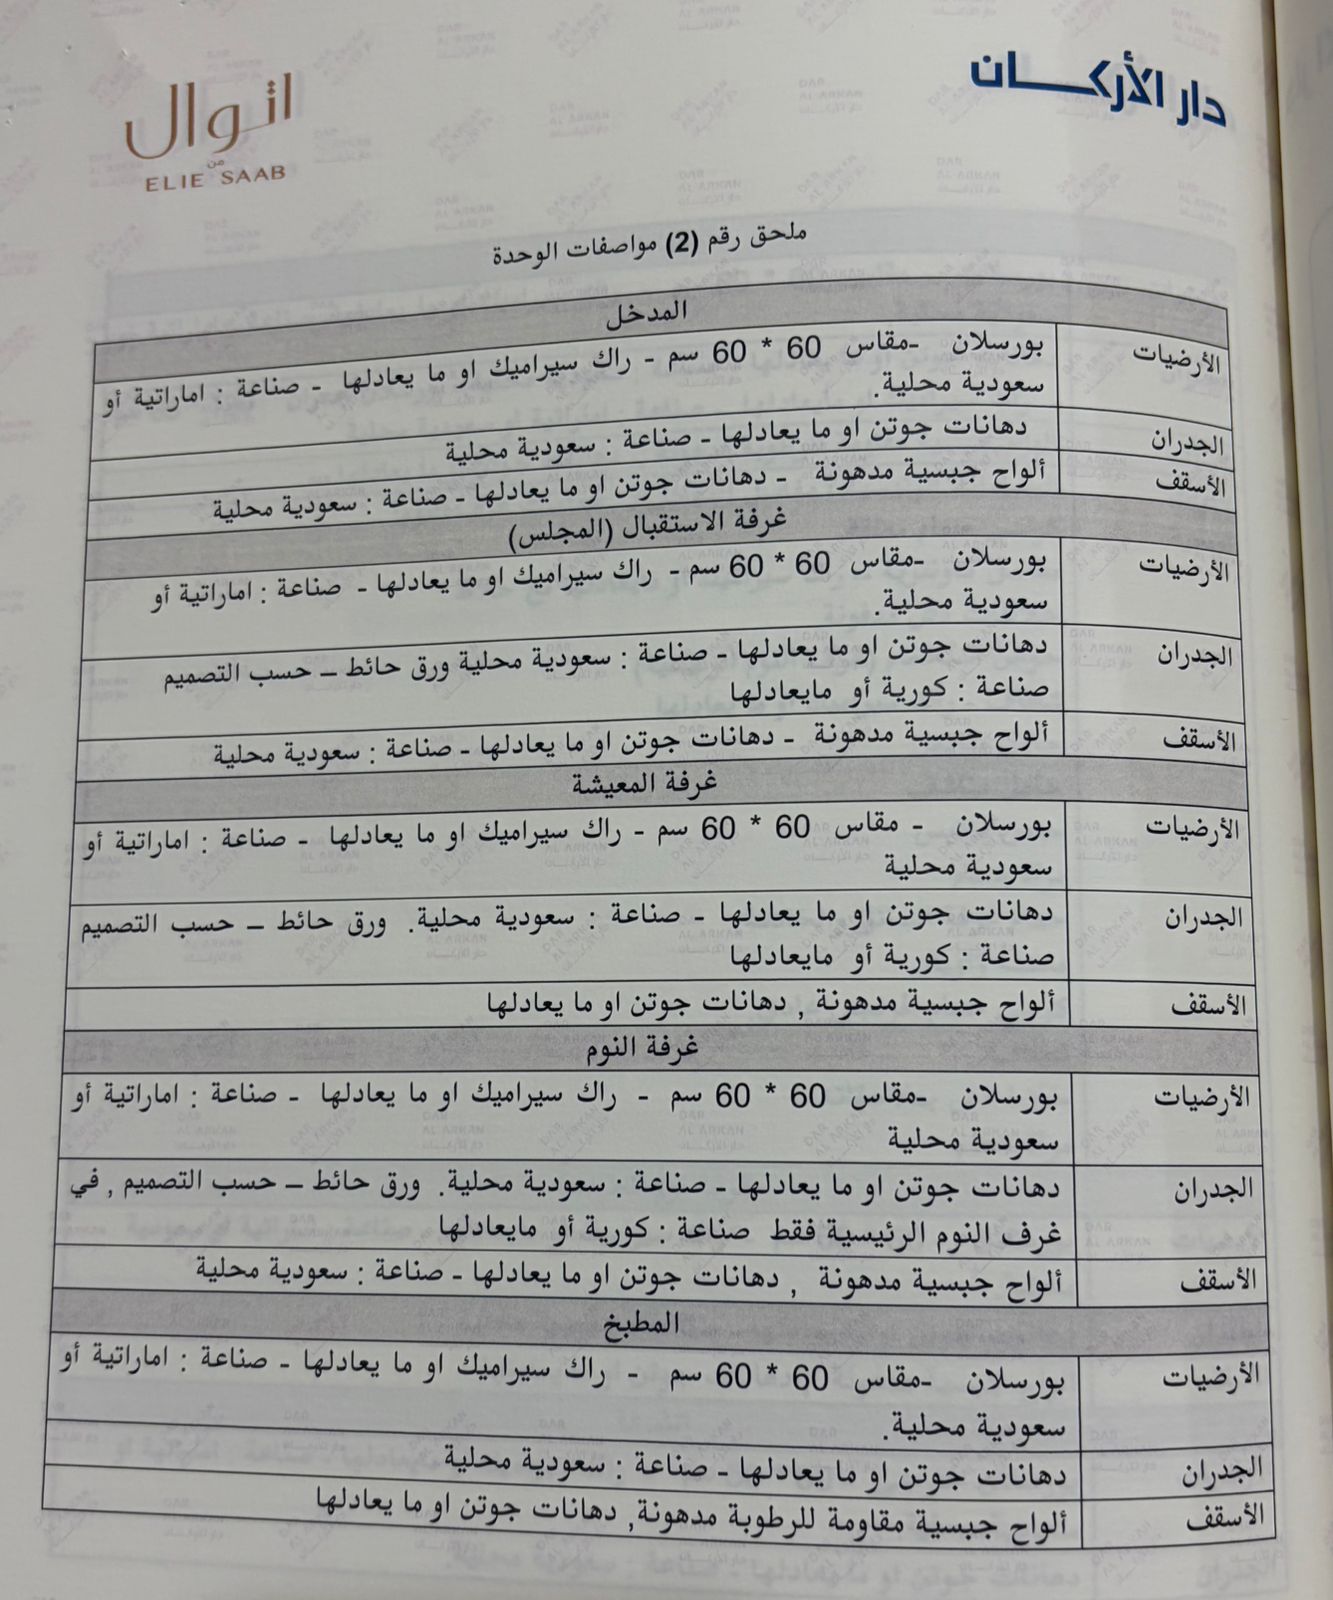 دار الأركان
اتوال
من
ELIE SAAB
ملحق رقم (2) مواصفات الوحدة
المدخل
الأرضيات
بورسلان -مقاس 60 * 60 سم - راك سيراميك او ما يعادلها - صناعة : اماراتية أو
سعودية محلية.
الجدران
دهانات جوتن او ما يعادلها - صناعة : سعودية محلية
الأسقف
ألواح جبسية مدهونة - دهانات جوتن او ما يعادلها - صناعة : سعودية محلية
غرفة الاستقبال (المجلس)
الأرضيات
بورسلان -مقاس 60 * 60 سم - راك سيراميك او ما يعادلها - صناعة : اماراتية أو
سعودية محلية.
الجدران
دهانات جوتن او ما يعادلها - صناعة : سعودية محلية ورق حائط – حسب التصميم
صناعة : كورية أو مايعادلها
الأسقف
ألواح جبسية مدهونة - دهانات جوتن او ما يعادلها - صناعة : سعودية محلية
غرفة المعيشة
الأرضيات
بورسلان - مقاس 60 * 60 سم - راك سيراميك او ما يعادلها - صناعة : اماراتية أو
سعودية محلية
الجدران
دهانات جوتن او ما يعادلها - صناعة : سعودية محلية. ورق حائط – حسب التصميم
صناعة : كورية أو مايعادلها
الأسقف
ألواح جبسية مدهونة , دهانات جوتن او ما يعادلها
غرفة النوم
الأرضيات
بورسلان -مقاس 60 * 60 سم - راك سيراميك او ما يعادلها - صناعة : اماراتية أو
سعودية محلية
الجدران
دهانات جوتن او ما يعادلها - صناعة : سعودية محلية. ورق حائط – حسب التصميم , في
غرف النوم الرئيسية فقط صناعة : كورية أو مايعادلها
الأسقف
ألواح جبسية مدهونة , دهانات جوتن او ما يعادلها - صناعة : سعودية محلية
المطبخ
الأرضيات
بورسلان -مقاس 60 * 60 سم - راك سيراميك او ما يعادلها - صناعة : اماراتية أو
سعودية محلية.
الجدران
دهانات جوتن او ما يعادلها - صناعة : سعودية محلية
الأسقف
ألواح جبسية مقاومة للرطوبة مدهونة, دهانات جوتن او ما يعادلها